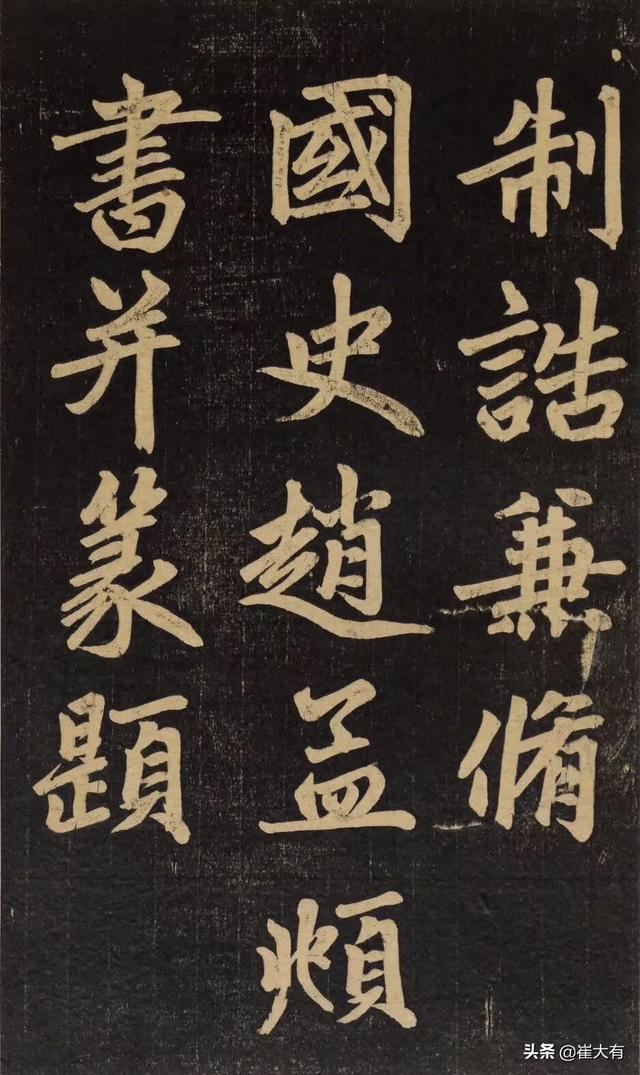 制誥兼脩
國史趙孟頫
書并篆題
头条 @崔大有